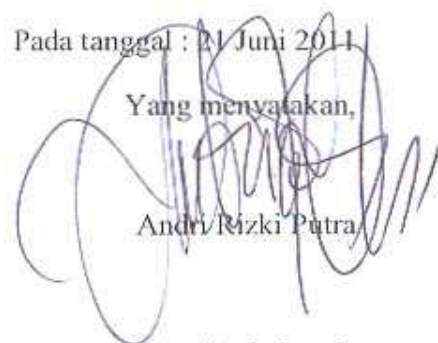 Pada tanggal : 21 Juni 2011
Yang menyatakan,
Andri Rizki Putra